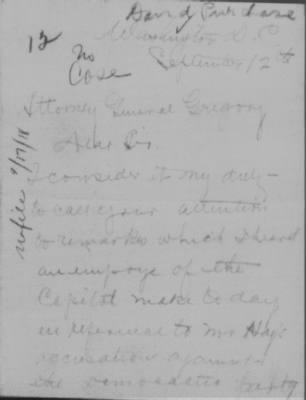 David Purchase
Washington D.C
12
No
Case
September 12th
Attorney General Gregory
Dear Sir.
I consider it my duty
to call your attention
to remarks which I heard
an employe of the
Capitol make to day
in reference to Mr Hay's
accusation against
the Democratic Party
9/17/18